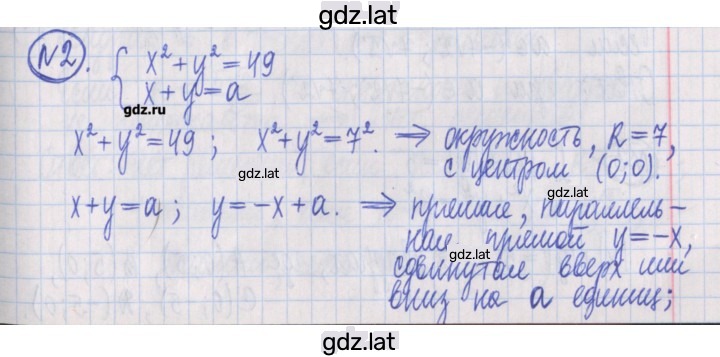 gdz.lat
№2. { x² + y² = 49
x + y = a
gdz.ru
x² + y² = 49 ; x² + y² = 7². ⇒ окружность, R = 7,
gdz.lat
с центром (0;0).
gdz.lat
x + y = a ; y = -x + a. ⇒ прямая, параллель-
ная прямой y = -x,
gdz.lat
сдвинутая вверх или
вниз на a единиц;
gdz.lat